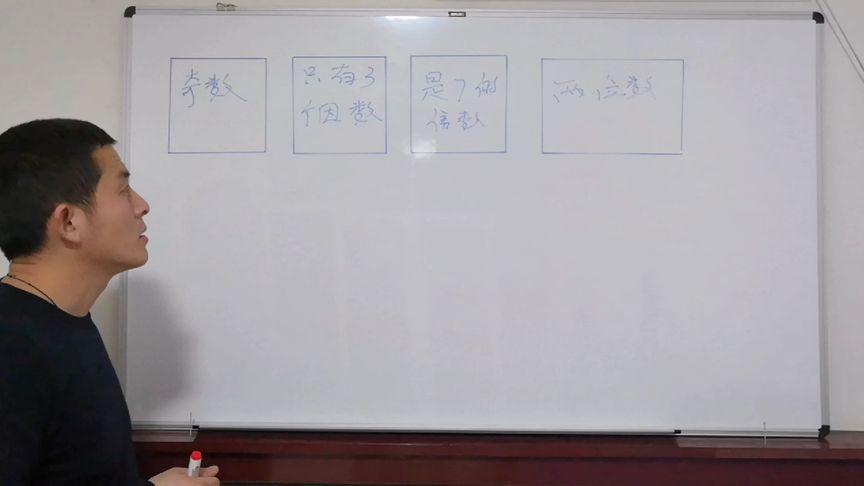 奇数
只有3
个因数
是7的
倍数
两位数